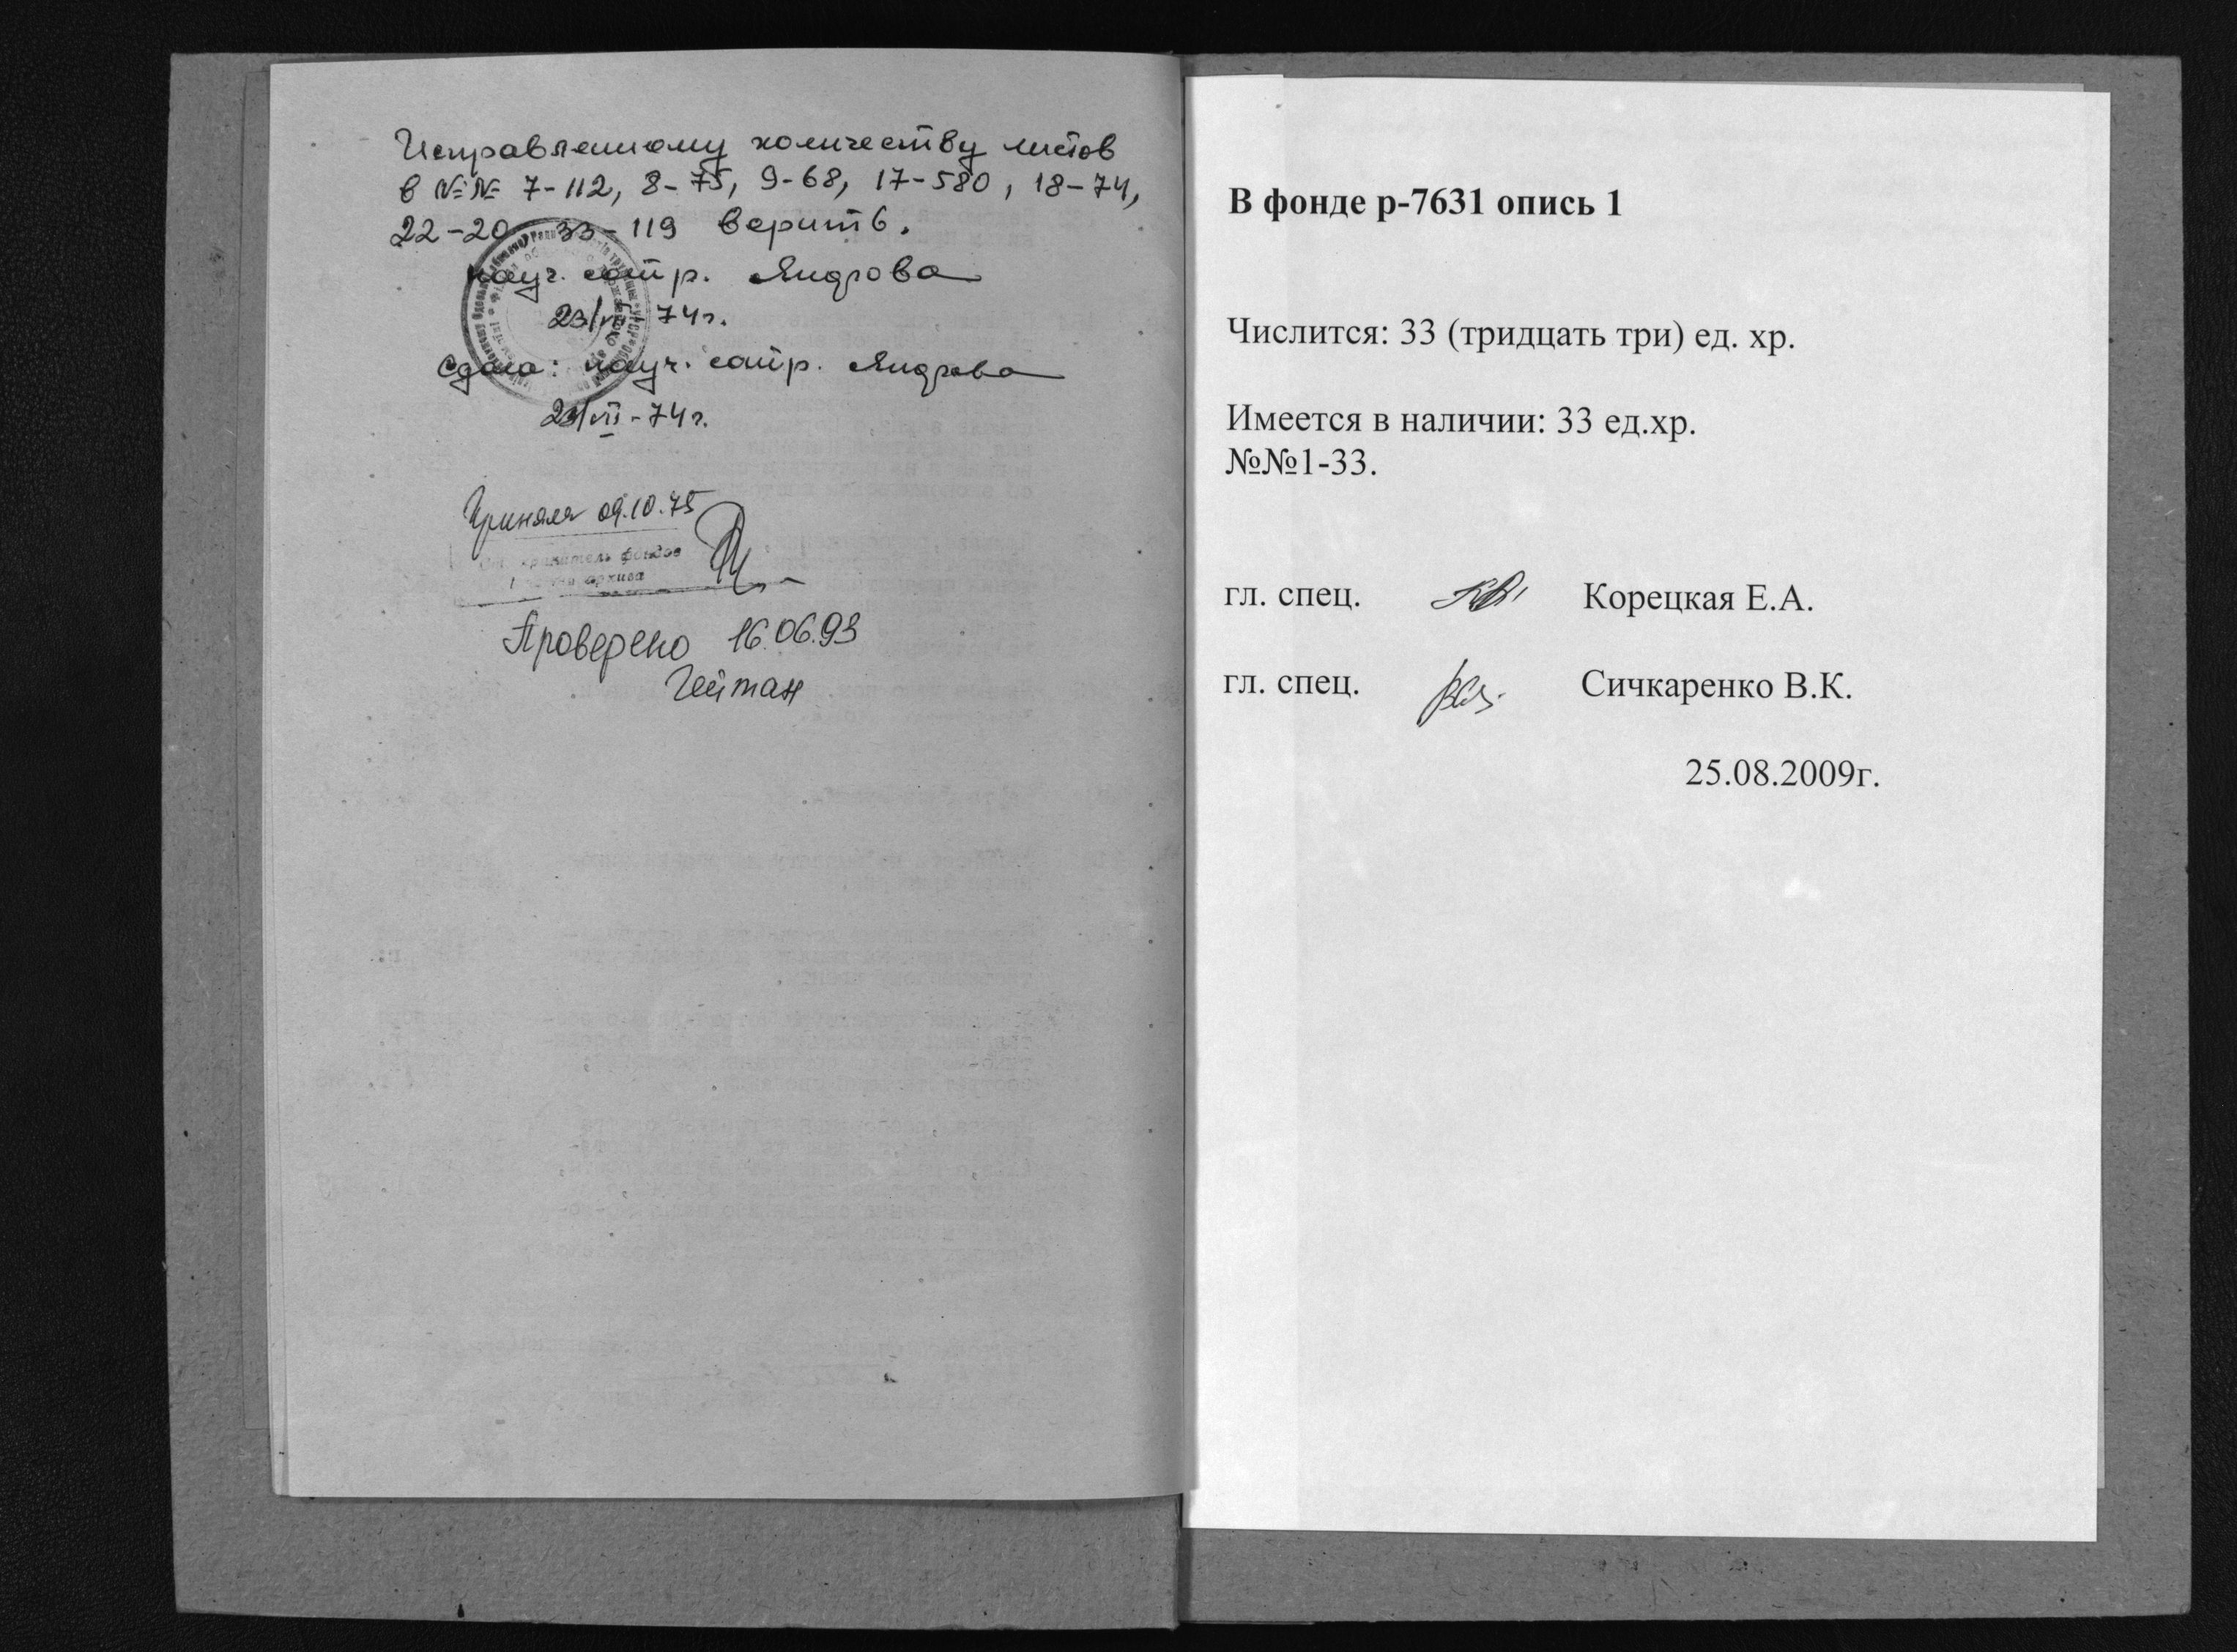 Исправленному количеству листов
в №№ 7-112, 8-75, 9-68, 17-580, 18-74,
22-20 33-119 верить.
науч. сотр. Яндрова
23/VII-74г.
Сдала: науч. сотр. Яндрова
23/VII-74г.
Приняла 09.10.75
хранитель фондов
архива
Проверено 16.06.93
Гейтан
В фонде р-7631 опись 1
Числится: 33 (тридцать три) ед. хр.
Имеется в наличии: 33 ед.хр.
№№1-33.
гл. спец. Корецкая Е.А.
гл. спец. Сичкаренко В.К.
25.08.2009г.